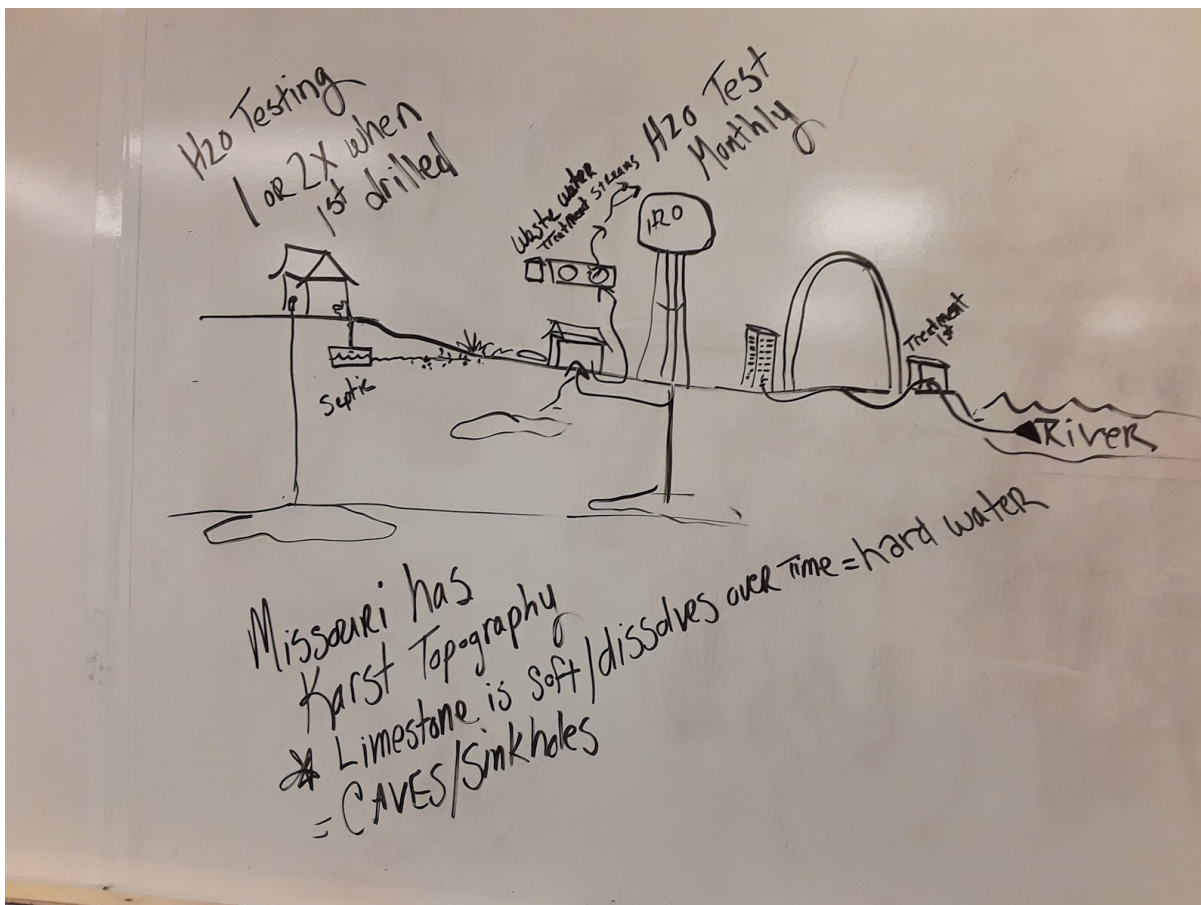 H2O Testing
1 OR 2X when
1st drilled
Waste water
Treatment Streams
H2O Test
Monthly
H2O
Septic
Treatment
1st
River
Missouri has
Karst Topography
* Limestone is soft/dissolves over Time = hard water
= CAVES/Sinkholes